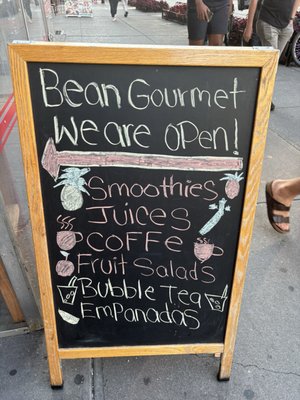 Bean Gourmet
We are open!
Smoothies
Juices
COFFe
Fruit Salads
Bubble Tea
Empanadas